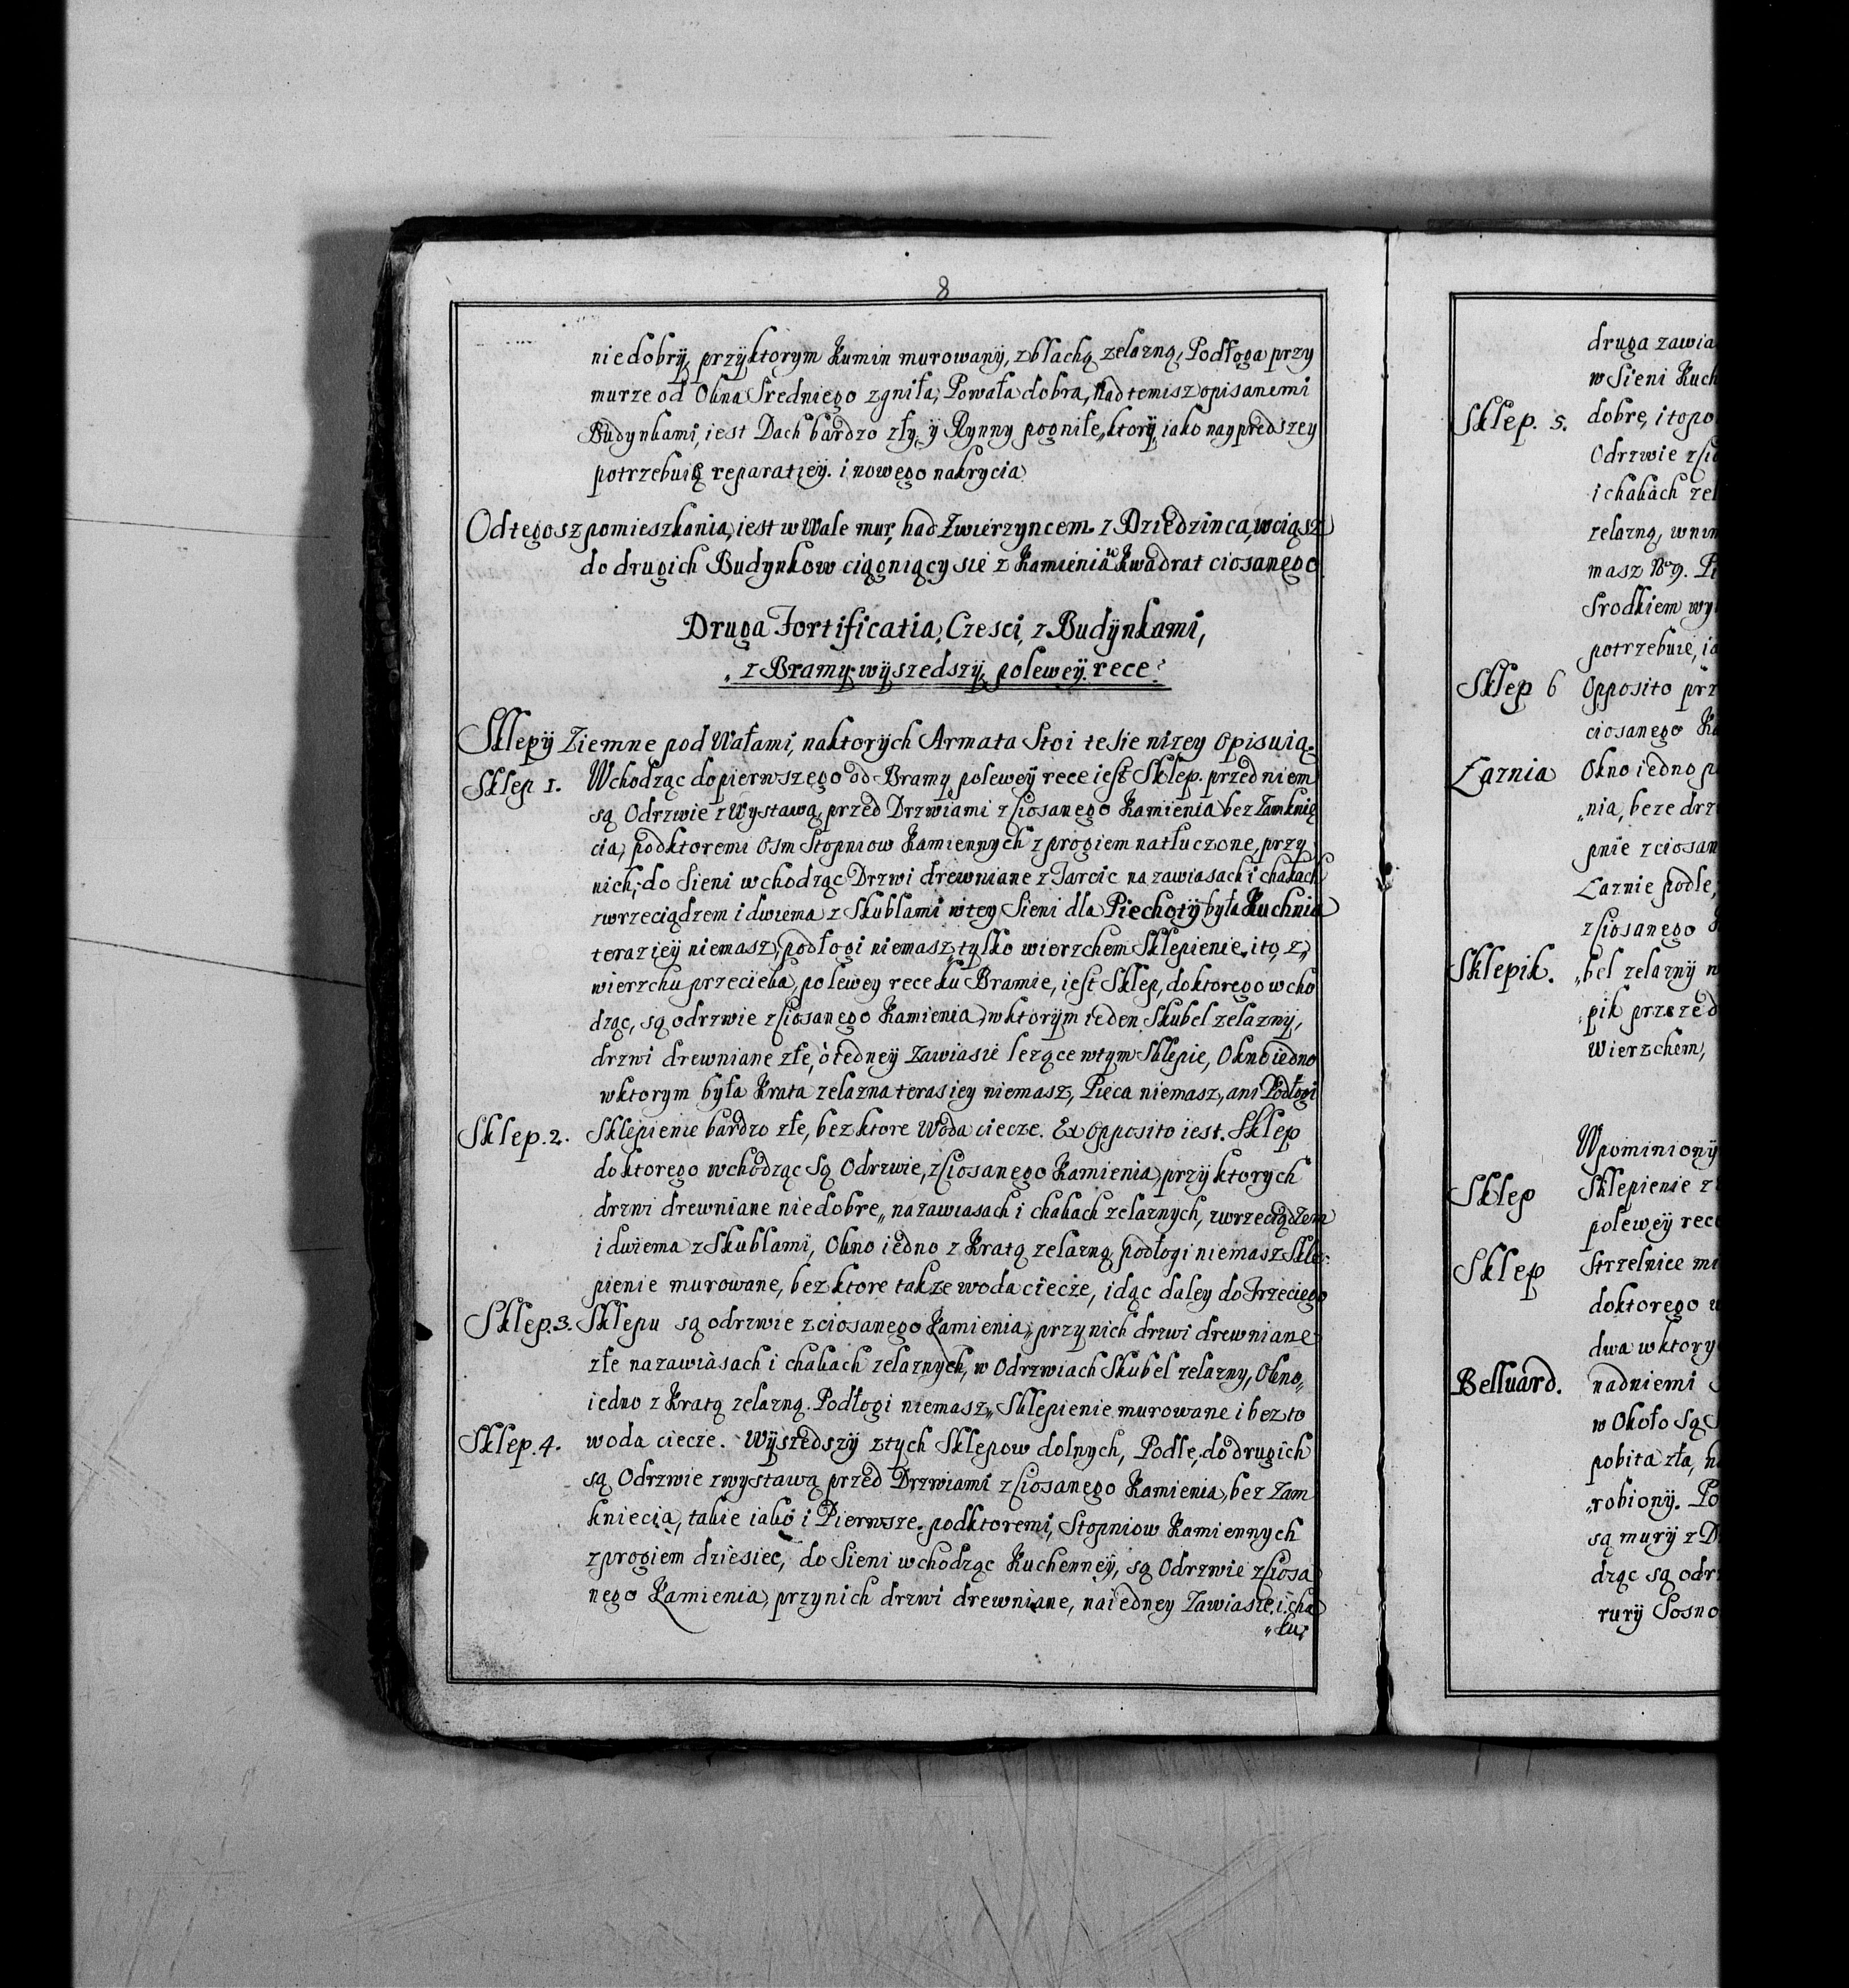 8
niedobrÿ, przÿktorym Kumin murowanÿ, zblachą zelazną, Podłoga przy
murze od Okna Sredniego zgniła, Powała dobra, Nad temisz opisanemi
Budynkami, iest Dach bardzo zły, ÿ Rynny pogniłe, ktorÿ, iako nayprędszey
potrzebuią reparatięÿ. i nowego nakrycia
Odtegosz pomieszkania, iest w Wale mur, nad Zwierzyncem z Dziedzinca, wciąsz
do drugich Budynkow ciągniący sie z Kamienia w Kwadrat ciosanego
Druga Fortificatia, Czesci, z Budÿnkami,
z Bramy wÿszedszÿ, polewey rece
Sklepÿ Ziemne pod Wałami, naktorÿch Armata Stoi te sie nizey opisuią.
Sklep 1. Wchodząc dopierwszego od Bramy polewey rece iest Sklep. przed niem
są Odrzwie z Wystawą, przed Drzwiami z Ciosanego Kamienia bez Zamknię
cia, podktoremi osm Stopniow Kamiennych z progiem natłuczone, przy
nich, do Sieni wchodząc Drzwi drewniane z Tarcic na zawiasach i chakach
zwrzeciądzem i dwiema z Skublami wtey Sieni dla Piechotÿ była Kuchnia
teraz ieÿ niemasz, podłogi niemasz, tylko wierzchem Sklepienie, ito, z
wierzchu przecieka, polewey rece ku Bramie, iest Sklep, doktorego wcho
dząc, są odrzwie z Ciosanego Kamienia, wktorÿm ieden Skubel zelaznÿ,
drzwi drewniane złe, o iedneÿ Zawiasie lezące wtym Sklepie, Okno iedno
wktorym była Krata zelazna teras iey niemasz, Pieca niemasz, ani Podłogi
Sklep. 2. Sklepienie bardzo złe, bez ktore Woda ciecze. Ex Opposito iest. Sklep
doktorego wchodząc Są Odrzwie, z Ciosanego Kamienia, przÿ ktorych
drzwi drewniane niedobre, na zawiasach i chakach zelaznych, zwrzeciądzem
i dwiema z Skublami, Okno iedno z Kratą zelazną, podłogi niemasz Skle
pienie murowane, bez ktore takze woda ciecze, idąc daley do Trzeciego
Sklep. 3. Sklepu są odrzwie z ciosanego Kamienia, przy nich drzwi drewniane
złe na zawiasach i chakach zelaznych, w Odrzwiach Skubel zelazny, Okno
iedno z Kratą zelazną. Podłogi niemasz, Sklepienie murowane i bez to
Sklep. 4. woda ciecze. Wÿszedszÿ ztych Sklepow dolnych, Podle, do drugich
są Odrzwie zwystawą przed Drzwiami z Ciosanego Kamienia, bez Zam
kniecia, takie iako i Pierwsze. podktoremi, Stopniow Kamiennych
z progiem dziesiec, do Sieni wchodząc Kuchenneÿ, są Odrzwie z Ciosa
nego Kamienia, przynich drzwi drewniane, na iedney Zawiasie, i cha
„ku,
druga zawia
w Sieni Kuch
Sklep. 5. dobre, i topo
Odrzwie z Cio
i chakach zel
zelazną, wnim
masz No 9. Pi
Srodkiem wy
potrzebuie, ia
Sklep 6 Opposito prz
ciosanego Ka
Łaznia Okno iedno p
„nia, beze drz
pnie z ciosan
Łaznie podle,
z Ciosanego K
Sklepik. „bel zelaznÿ w
pik przezed
Wierzchem,
Wpominionÿ
Sklep Sklepienie z
poleweÿ rece
Sklep Strzelnice mu
doktorego w
dwa wktory
Belluard. nadniemi S
w Około Są S
pobita zła, n
„robionÿ. Po
są murÿ z D
dząc są odrz
rurÿ Sosno